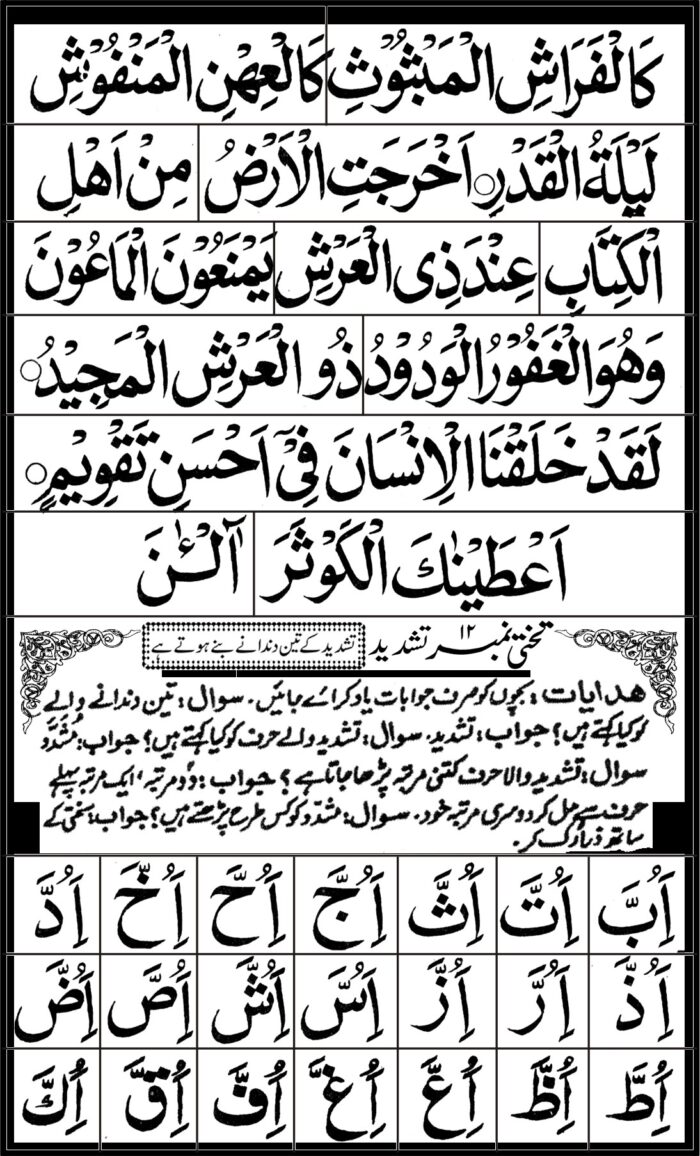 كَالْفَرَاشِ الْمَبْثُوْثِ كَالْعِهْنِ الْمَنْفُوْشِ
لَيْلَةُ الْقَدْرِ ○ اَخْرَجَتِ الْاَرْضُ مِنْ اَهْلِ
الْكِتَابِ عِنْدَ ذِى الْعَرْشِ يَمْنَعُوْنَ الْمَاعُوْنَ
وَهُوَ الْغَفُوْرُ الْوَدُوْدُ ذُو الْعَرْشِ الْمَجِيْدُ ○
لَقَدْ خَلَقْنَا الْاِنْسَانَ فِىْٓ اَحْسَنِ تَقْوِيْمٍ ○
اَعْطَيْنٰكَ الْكَوْثَرَ آلْـٰٔنَ
تختی نمبر ۱۲ تشدید تشدید کے تین دندانے بنے ہوتے ہے
ھدایات: بچوں کو صرف جوابات یاد کرائے جائیں۔ سوال: تین دندانے والے
کو کیا کہتے ہیں؟ جواب: تشدید۔ سوال: تشدید والے حرف کو کیا کہتے ہیں؟ جواب: مُشَدَّد
سوال: تشدید والا حرف کتنی مرتبہ پڑھا جاتا ہے؟ جواب: دو مرتبہ، ایک مرتبہ پہلے
حرف سے مل کر دوسری مرتبہ خود۔ سوال: مشدّد کو کس طرح پڑھتے ہیں؟ جواب: سختی کے
ساتھ ذرا رک کر۔
اَُِبَّ اَُِتَّ اَُِثَّ اَُِجَّ اَُِحَّ اَُِخَّ اَُِدَّ
اَُِذَّ اَُِرَّ اَُِزَّ اَُِسَّ اَُِشَّ اَُِصَّ اَُِضَّ
اَُِطَّ اَُِظَّ اَُِعَّ اَُِغَّ اَُِفَّ اَُِقَّ اَُِكَّ